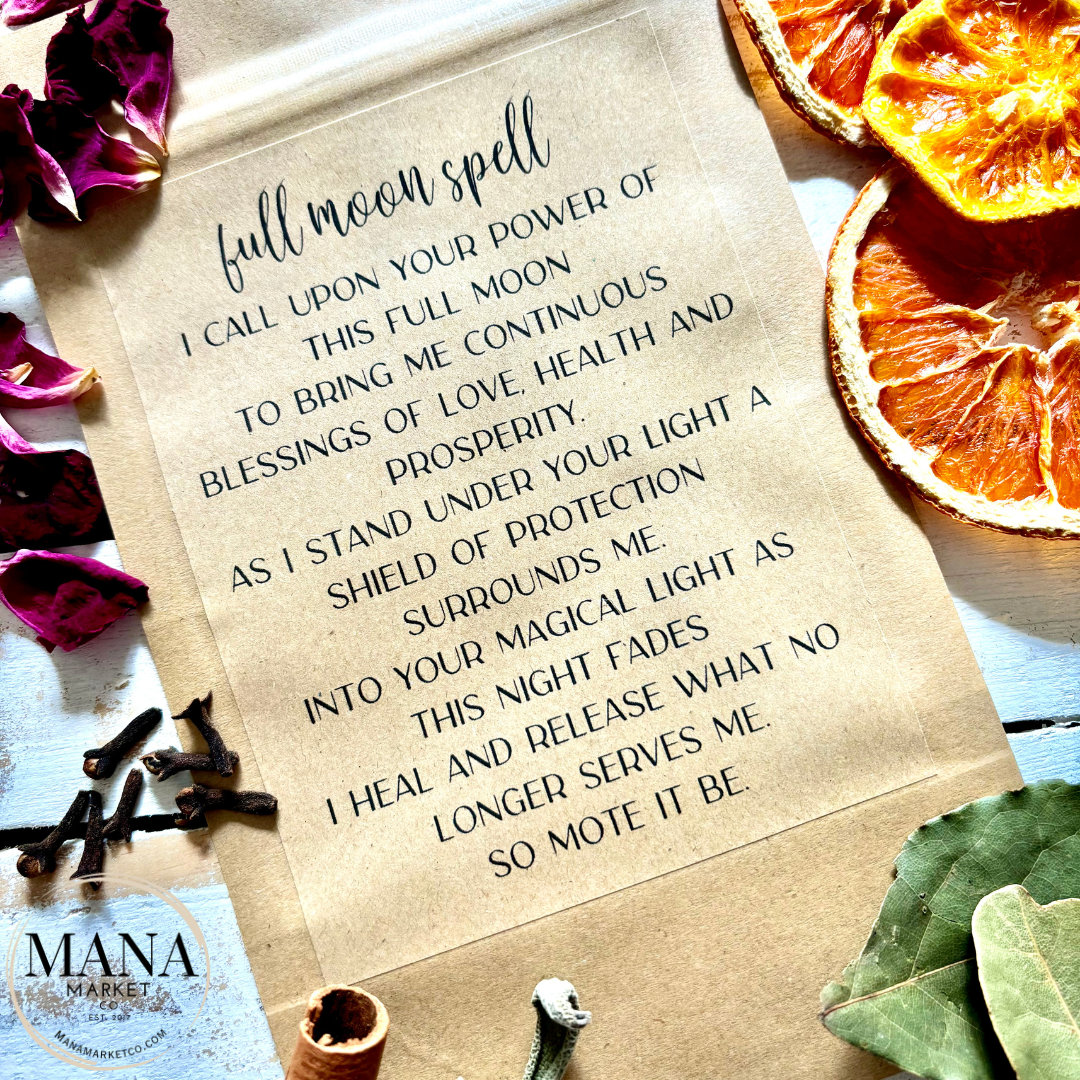 full moon spell
I CALL UPON YOUR POWER OF
THIS FULL MOON
TO BRING ME CONTINUOUS
BLESSINGS OF LOVE, HEALTH AND
PROSPERITY.
AS I STAND UNDER YOUR LIGHT A
SHIELD OF PROTECTION
SURROUNDS ME.
INTO YOUR MAGICAL LIGHT AS
THIS NIGHT FADES
I HEAL AND RELEASE WHAT NO
LONGER SERVES ME.
SO MOTE IT BE.
MANA
MARKET
CO
EST. 2017
MANAMARKETCO.COM